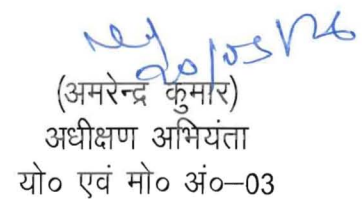 20/05/26
(अमरेन्द्र कुमार)
अधीक्षण अभियंता
यो० एवं मो० अं०–03